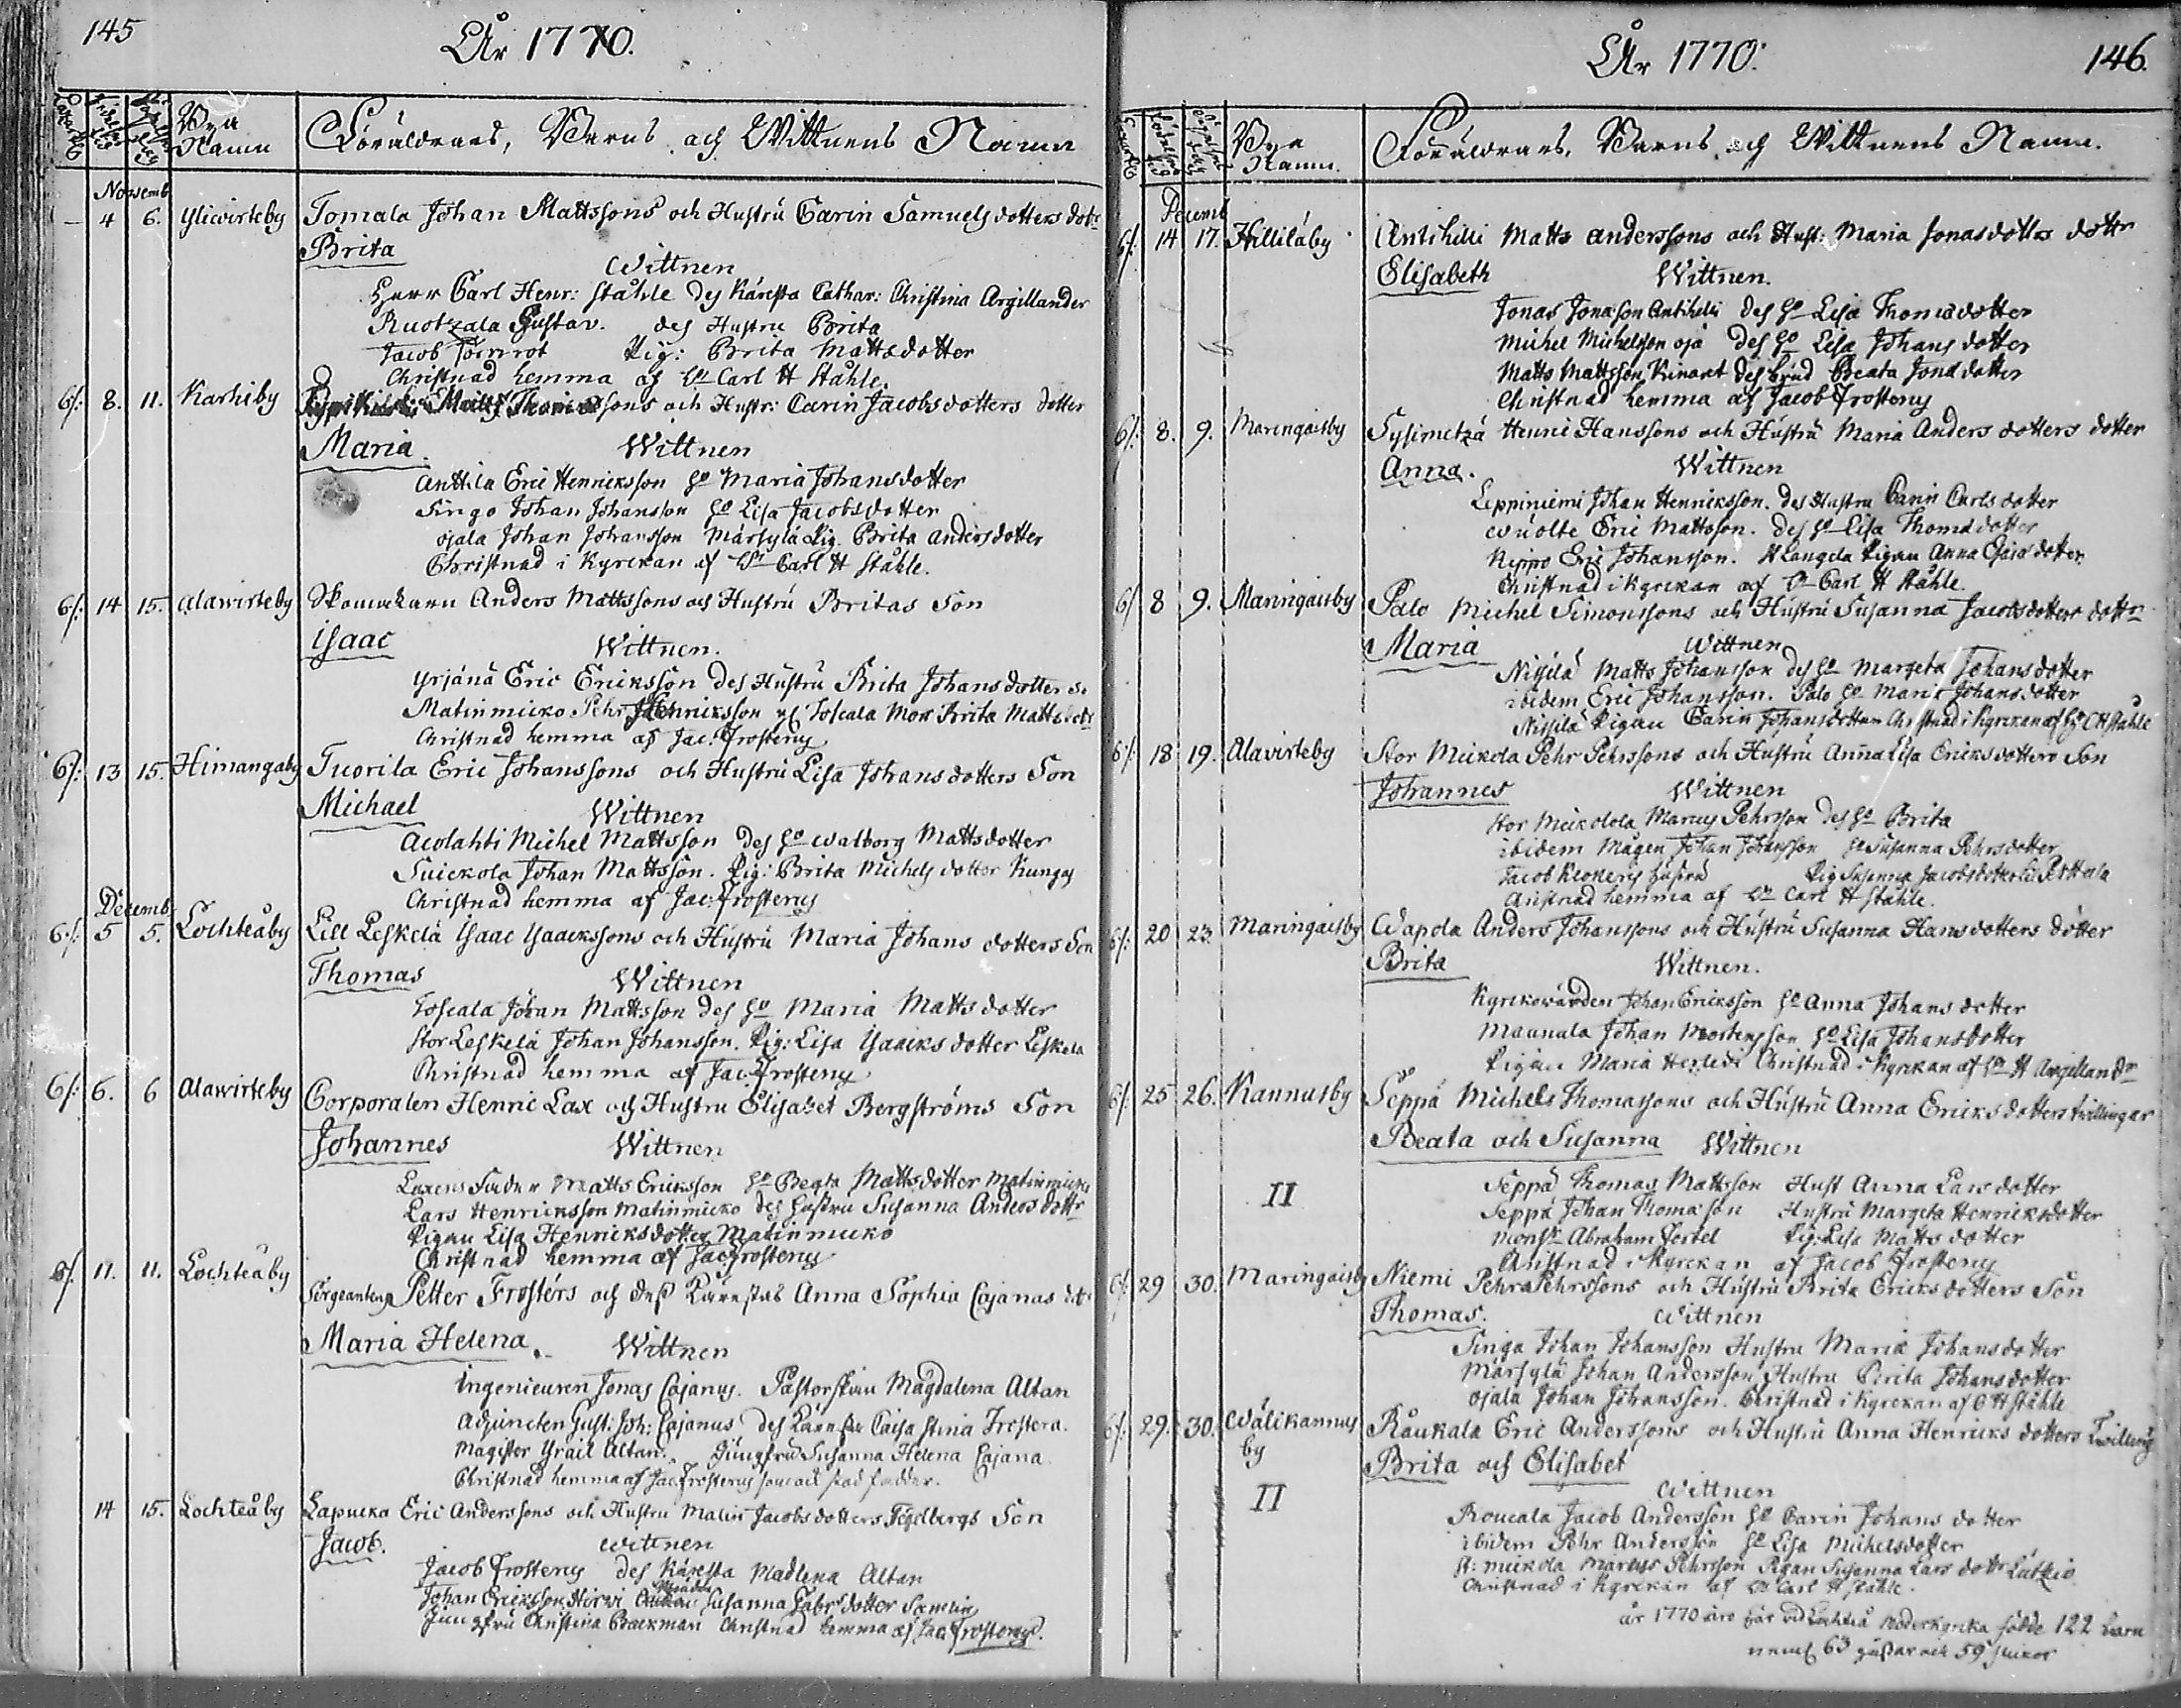 145
År 1770.
Bya Namn
Föräldrars, Barns och Wittnens Namn
Novemb
4 6. Yliwirteby Tomala Johan Mattssons och Hustru Carin Samuelsdotters dotr
Brita
Wittnen
Herr Carl Henr: Ståhle des Käresta Cathar: Christina Argillander
Ruotzala Gustav. des Hustru Brita
Jacob Törnrot Pig: Brita Mattsdotter
Christnad hemma af Hr Carl H Ståhle.
6/: 8. 11. Karhiby Matts Thomassons och Hustr: Carin Jacobsdotters dotter
Maria.
Wittnen
Anttila Eric Henriksson Ho Maria Johansdotter
Singo Johan Johansson Ho Lisa Jacobsdotter
Ojala Johan Johansson Märsylä Pig. Brita Andersdotter
Christnad i Kyrckan af Hr Carl H Ståhle.
6/: 14 15. Alawirteby Anders Mattssons och Hustru Britas Son
Isaac
Wittnen.
Yrjänä Eric Ericksson des Hustru Brita Johansdotter
Matinmicko Pehr Henricksson Toscala Mor Brita Mattsdotr
Christnad hemma af Jac: Frosterus
6/: 13 15. Himangaby Tuorila Eric Johanssons och Hustru Lisa Johansdotters Son
Michael
Wittnen
Aolahti Michel Mattsson des Ho Walborg Mattsdotter
Suickola Johan Mattsson. Pig: Brita Michelsdotter Kungas
Christnad hemma af Jac: Frosterus
Decemb
6/: 5 5. Lochteåby Lill Leskelä Isaac Isaackssons och Hustru Maria Johansdotters Son
Thomas
Wittnen
Toscala Johan Mattsson des Ho Maria Mattsdotter
Stor Leskelä Johan Johansson. Pig: Lisa Isaacksdotter Leskelä
Christnad hemma af Jac. Frosterus
6/: 6. 6 Alawirteby Corporalen Henric Lax och Hustru Elisabet Bergströms Son
Johannes
Wittnen
Laxens Fader Matts Ericksson Ho Beata Mattsdotter Matinmicko
Lars Henricksson Matinmicko des Hustru Susanna Andersdottr
Pigan Lisa Henricksdotter Matinmicko
Christnad hemma af Jac Frosterus
6/: 11. 11. Lochteåby Sergeanten Petter Frosters och dess Kärestas Anna Sophia Cajanas dottr
Maria Helena.
Wittnen
Ingenieuren Jonas Cajanus. Pastorskan Magdalena Altan
Adjuncten Gust: Joh: Cajanus des Käresta Caisa Stina Frostera.
Magister Israil Altan. Jungfru Susanna Helena Cajana
Christnad hemma af Jac. Frosterus
14 15. Lochteåby Lapucka Eric Anderssons och Hustru Malin Jacobsdotters Fögelbergs Son
Jacob.
Wittnen
Jacob Frosterus des Käresta Madlena Altan
Johan Ericksson Hirwi Susanna Gabr:dotter Samlin
Jungfru Christina Brackman Christnad hemma af Jac. Frosterus.
År 1770.
146.
Bya Namn.
Föräldrars, Barns och Wittnens Namn.
Decemb
6/: 14 17. Hilliläby Antihilli Matts Anderssons och Hust: Maria Jonasdotters dottr
Elisabeth
Wittnen.
Jonas Jonasson Antihilli des Ho Lisa Thomsdotter
Michel Michelsson Oja des Ho Lisa Johansdotter
Matts Mattsson Kinart des brud Beata Jonsdotter
Christnad hemma af Jacob Frosterus
6/: 8. 9. Maringaisby Sysimetzä Henric Hanssons och Hustru Maria Andersdotters dotter
Anna.
Wittnen
Leppiniemi Johan Henricksson. des Hustru Carin Carlsdotter
Wuolte Eric Mattsson. des Ho Lisa Thomsdotter
Kippo Eric Johansson. Pigan Anna dotter
Christnad i Kyrckan af Hr Carl H Ståhle.
6/: 8 9. Maringaisby Palo Michel Simonssons och Hustru Susanna Jacobsdotters dottr
Maria
Wittnen
Nissilä Matts Johansson des Ho Margeta Johansdotter
ibidem Eric Johansson. Palo Ho Maria Johansdotter
Nissilä Pigan Carin Johansdotter Christnad i Kyrckan af Hr C H Ståhle
6/: 18 19. Alavirteby Stor Mickola Pehr Pehrssons och Hustru Anna Lisa Ericksdotters Son
Johannes
Wittnen
Stor Mickola Marcus Pehrsson des Ho Brita
ibidem Mågen Johan Johansson Ho Susanna Pehrsdotter
Jacob Klockers hustru Pig Susanna Jacobsdotter
Christnad hemma af Hr Carl H Ståhle.
6/: 20 23. Maringaisby Wapola Anders Johanssons och Hustru Susanna Hansdotters dotter
Brita
Wittnen.
Kyrckowärden Johan Ericksson Ho Anna Johansdotter
Maunula Johan Mortensson Ho Lisa Johansdotter
Pigan Maria Christnad i Kyrckan af Hr H Argillandr
6/: 25 26. Kannusby Seppä Michels Thomassons och Hustru Anna Ericksdotters twillingar
Beata och Susanna
Wittnen
Seppä Thomas Mattsson Hust Anna Larsdotter
II
Seppä Johan Thomasson Hustru Margeta Henricksdotter
Monsr Abraham Fortel Pig: Lisa Mattsdotter
Christnad i Kyrckan af Jacob Frosterus
6/: 29 30. Maringaisby Niemi Pehr Pehrssons och Hustru Brita Ericksdotters Son
Thomas.
Wittnen
Singa Johan Johansson Hustru Maria Johansdotter
Märsylä Johan Andersson Hustru Brita Johansdotter
Ojala Johan Johansson. Christnad i Kyrckan af C H Ståhle
6/: 29. 30. Wälikannus by Raukala Eric Anderssons och Hustru Anna Henricksdotters Twilling
Brita och Elisabet
II
Wittnen
Roucala Jacob Andersson Ho Carin Johansdotter
ibidem Pehr Andersson Ho Lisa Michelsdotter
St: Mickola Marcus Pehrsson Pigan Susanna Larsdottr
Christnad i Kyrckan af Hr Carl H Ståhle.
år 1770 äro här wid Lochteå Moderkyrka födde 122 barn
neml. 63 gossar och 59 flickor